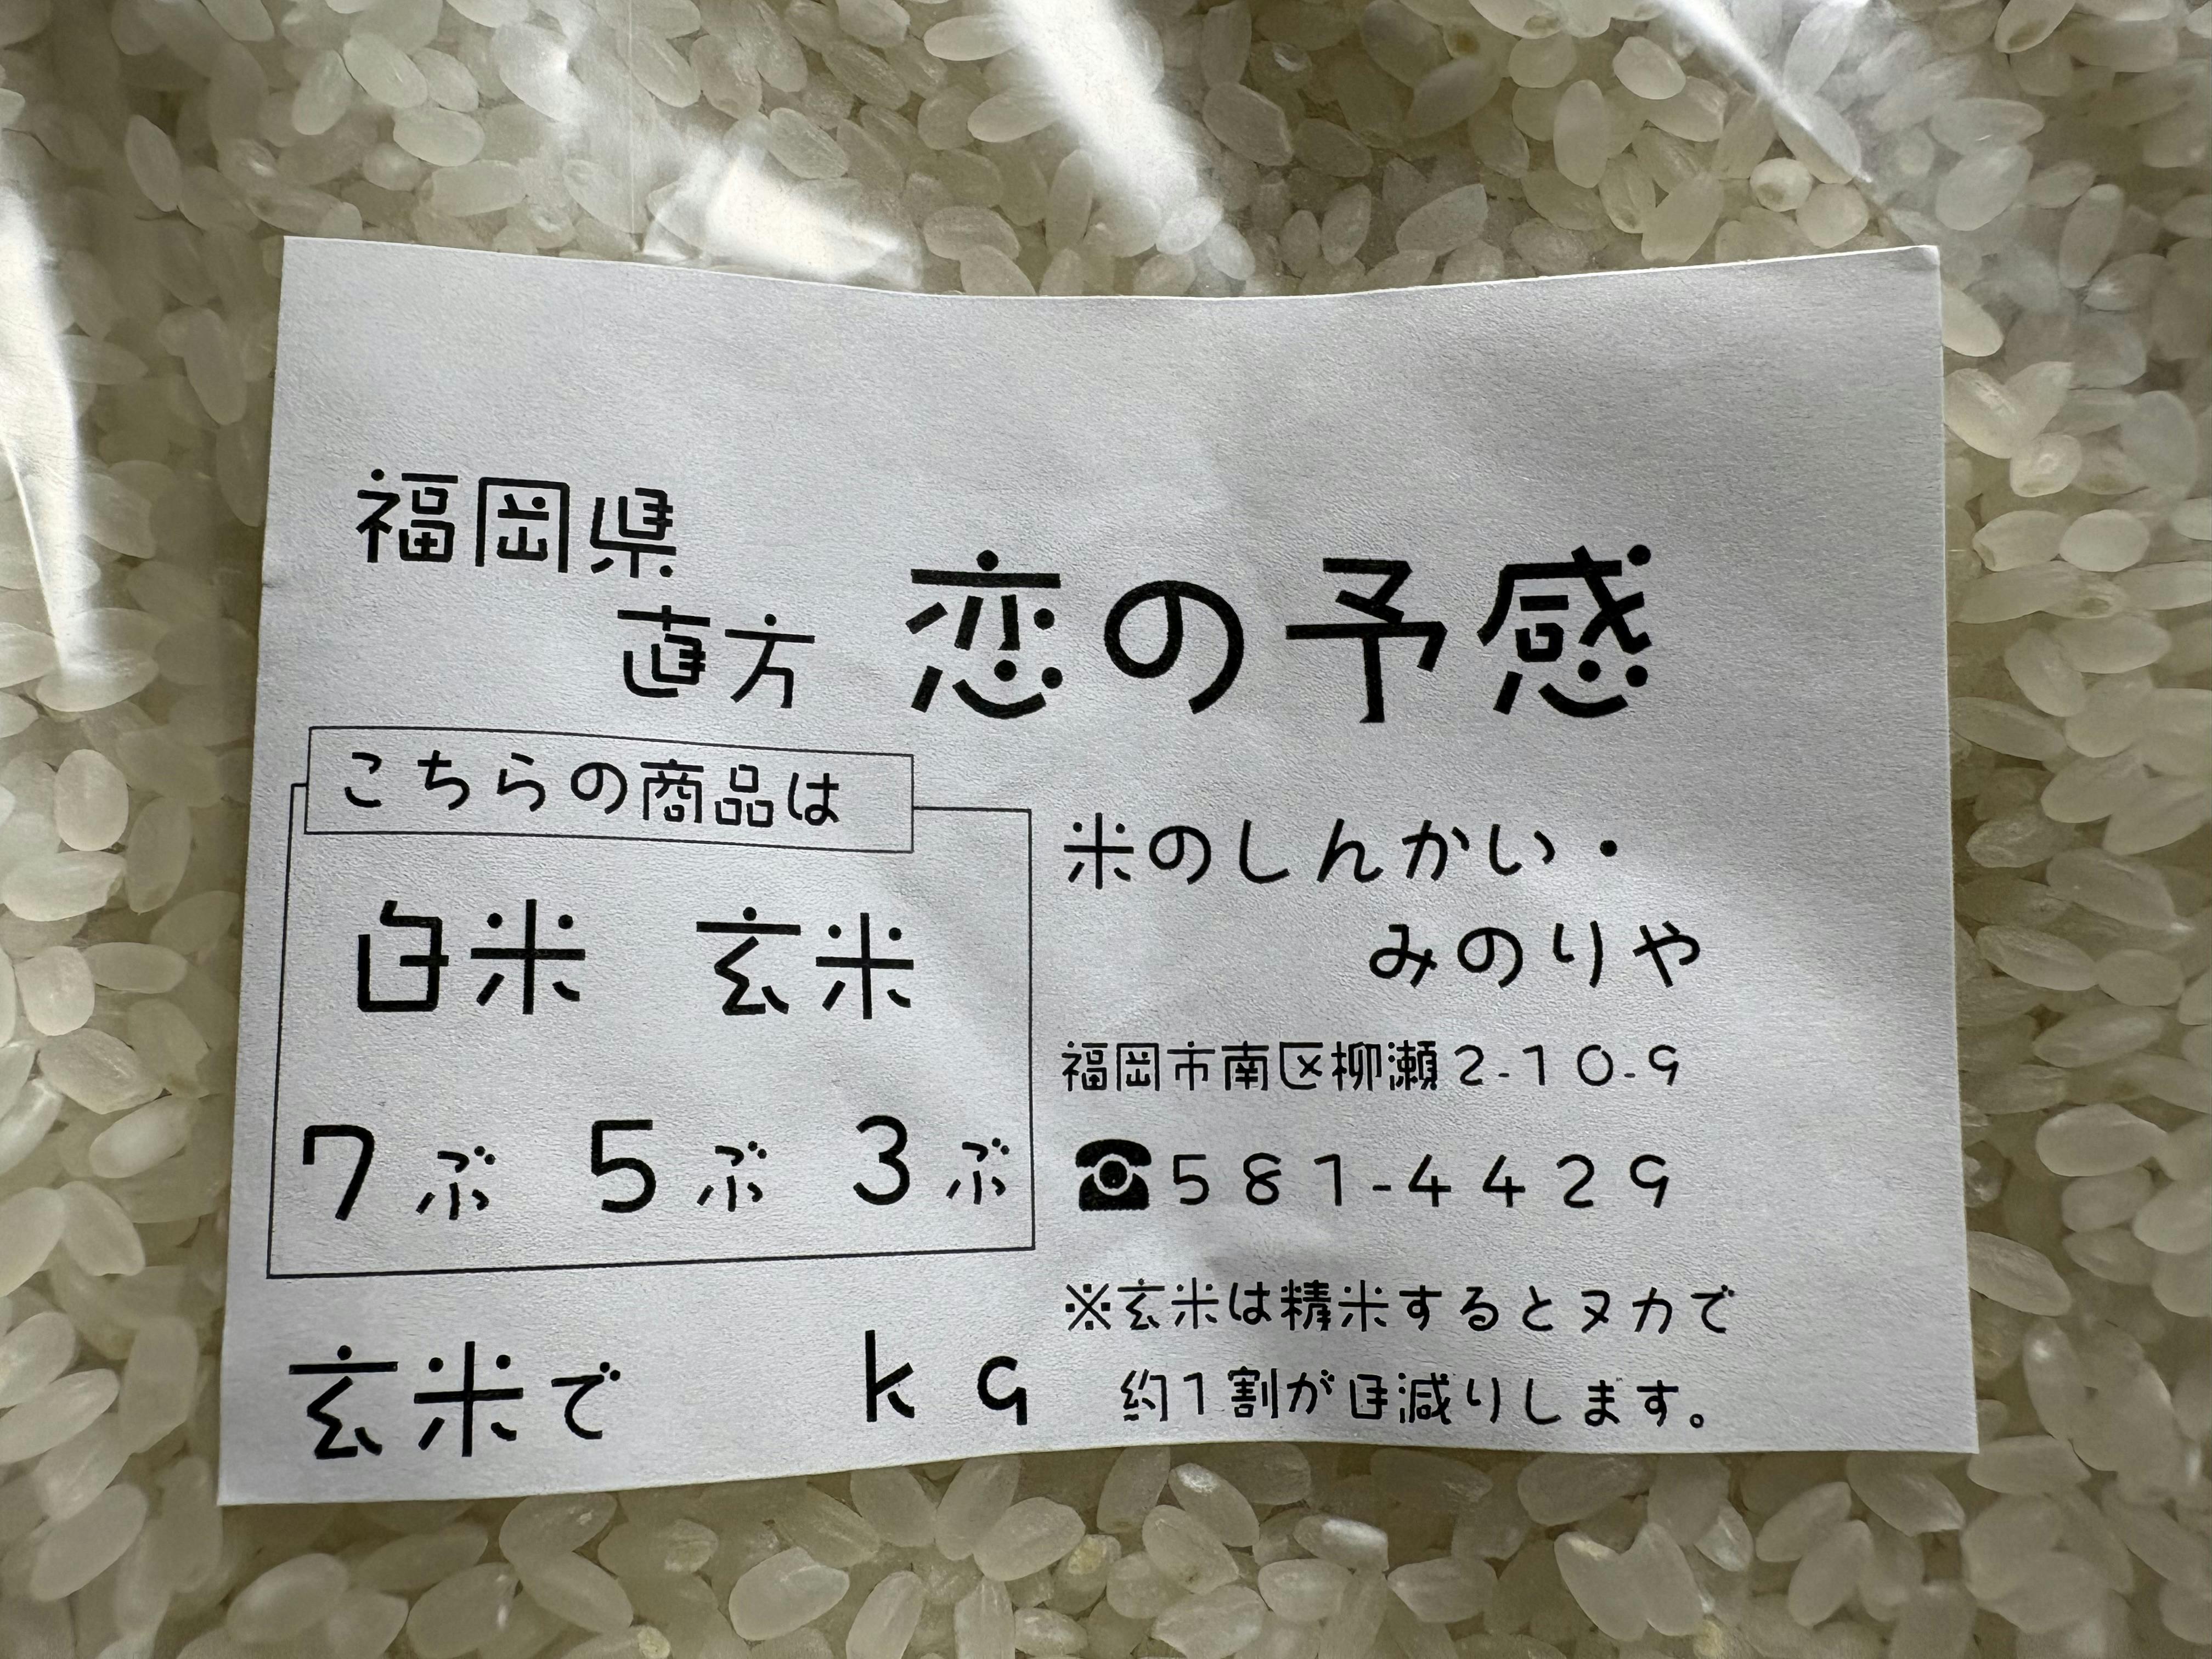 福岡県
直方 恋の予感
こちらの商品は
白米 玄米
7ぶ 5ぶ 3ぶ
玄米で kg
米のしんかい・
みのりや
福岡市南区柳瀬2-10-9
☎581-4429
※玄米は精米するとヌカで
約1割が目減りします。